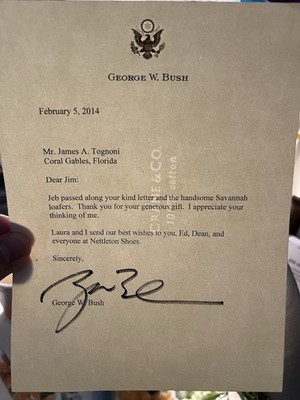 GEORGE W. BUSH
February 5, 2014
Mr. James A. Tognoni
Coral Gables, Florida
Dear Jim:
Jeb passed along your kind letter and the handsome Savannah
loafers. Thank you for your generous gift. I appreciate your
thinking of me.
Laura and I send our best wishes to you, Ed, Dean, and
everyone at Nettleton Shoes.
Sincerely,
George W. Bush
CRANE & CO.
cotton